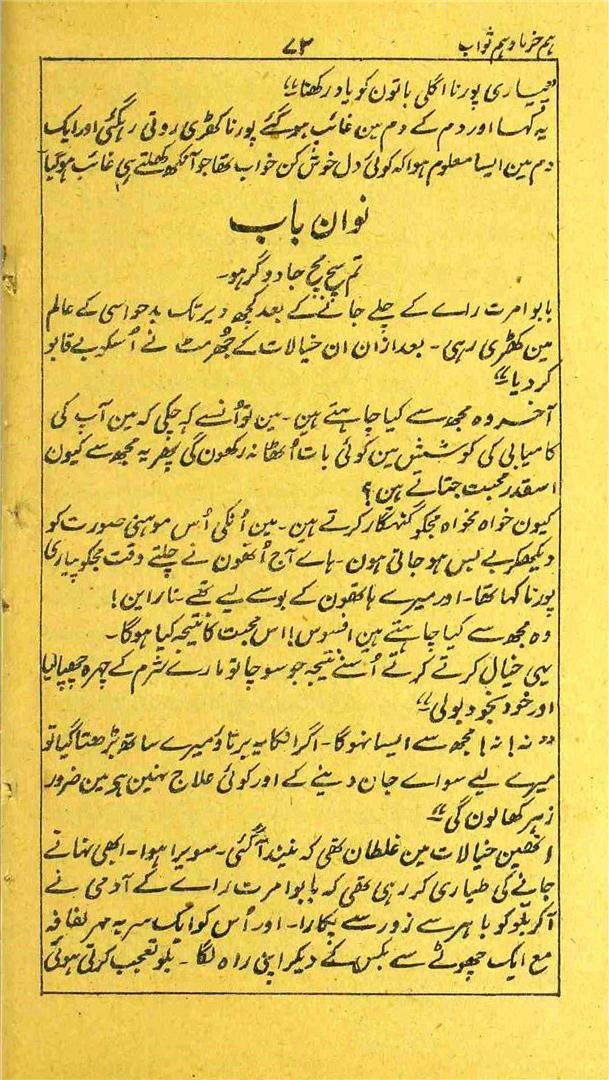 ہم خرما و ہم ثواب ۷۳
”پیاری پورنا اگلی باتون کو یاد رکھنا“
یہ کہا اور دم کے دم مین غائب ہو گئے پورنا کھڑی روتی رہگئی اور ایک
دم مین ایسا معلوم ہوا کہ کوئی دل خوش کن خواب تھا جو آنکھ کھلتے ہی غائب ہو گیا
نوان باب
تم سچ مچ جادوگر ہو۔
بابو امرت راے کے چلے جانے کے بعد کچھ دیر تک بدحواسی کے عالم
مین کھڑی رہی۔ بعد ازان ان خیالات کے جُھرمٹ نے اُسکو بے قابو
کر دیا“
آخر وہ مجھ سے کیا چاہتے ہین۔ مین تو اُنسے کہہ چکی کہ مین آپ کی
کامیابی کی کوشش مین کوئی بات اُٹھا نہ رکھون گی پھر یہ مجھ سے کیون
اسقدر محبت جتاتے ہین؟
کیون خواہ مخواہ مجکو گنہگار کرتے ہین۔ مین اُنکی اُس موہنی صورت کو
دیکھکر بے بس ہو جاتی ہون۔ ہاے آج اُنھون نے چلتے وقت مجکو پیاری
پورنا کہا تھا۔ اور میرے ہاتھون کے بوسے لیے تھے۔ نارا این!
وہ مجھ سے کیا چاہتے ہین افسوس! اس محبت کا نتیجہ کیا ہوگا۔
یہی خیال کرتے کرتے اُسنے نتیجہ جو سوچا تو مارے شرم کے چہرہ چھپا لیا
اور خود بخود بولی“
”نہ! نہ! مجھ سے ایسا نہوگا۔ اگر انکا یہ برتاؤ میرے ساتھ بڑھتا گیا تو
میرے لیے سواے جان دینے کے اور کوئی علاج نہین ہے مین ضرور
زہر کھا لون گی“
انھین خیالات مین غلطان تھی کہ نیند آ گئی۔ سویرا ہوا۔ ابھی نہانے
جانے کی طیاری کر رہی تھی کہ بابو امرت راے کے آدمی نے
آکر بلو کو باہر سے زور سے پکارا۔ اور اُس کو ایک سر بہ مہر لفافہ
مع ایک چھوٹے سے بکس کے دیکر اپنی راہ لگا۔ بلو تعجب کرتی ہوئی